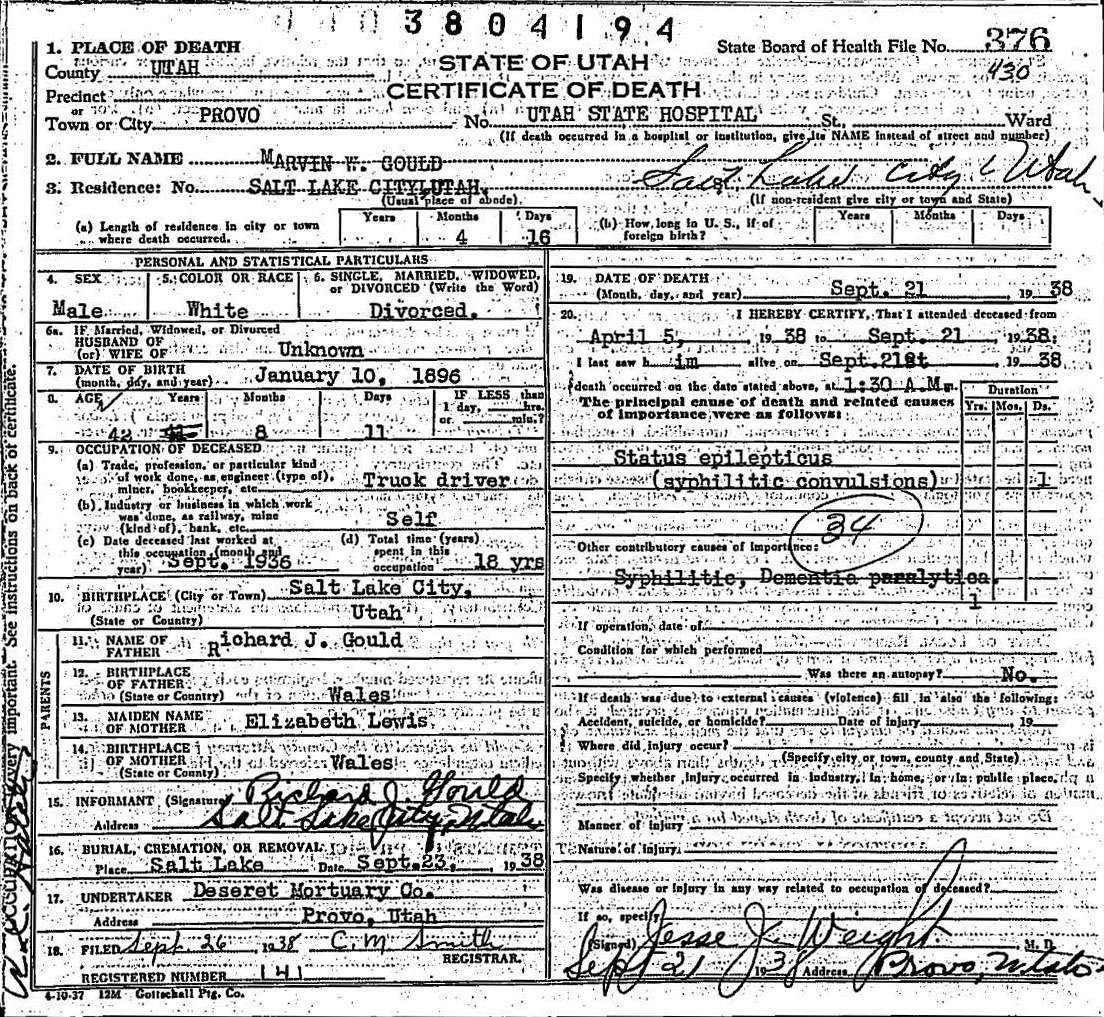 3804194
1. PLACE OF DEATH
State Board of Health File No. 376
430
County UTAH
STATE OF UTAH
CERTIFICATE OF DEATH
Precinct
or
Town or City PROVO No. UTAH STATE HOSPITAL St., Ward
(If death occurred in a hospital or institution, give its NAME instead of street and number)
2. FULL NAME MARVIN W. GOULD
3. Residence: No. SALT LAKE CITY, UTAH, St. Salt Lake City Utah
(Usual place of abode) (If non-resident give city or town and State)
(a) Length of residence in city or town where death occurred. Years Months 4 Days 16
(b) How long in U. S., if of foreign birth? Years Months Days
PERSONAL AND STATISTICAL PARTICULARS
4. SEX Male
5. COLOR OR RACE White
6. SINGLE, MARRIED, WIDOWED, or DIVORCED (Write the Word) Divorced.
6a. If Married, Widowed, or Divorced
HUSBAND OF
(or) WIFE OF Unknown
7. DATE OF BIRTH
(month, day, and year) January 10, 1896
8. AGE Years 42 41 Months 8 Days 11 IF LESS than 1 day, hrs. or min.?
9. OCCUPATION OF DECEASED
(a) Trade, profession, or particular kind
of work done, as engineer (type of),
miner, bookkeeper, etc. Truck driver
(b) Industry or business in which work
was done, as railway, mine
(kind of), bank, etc. Self
(c) Date deceased last worked at
this occupation (month and
year) Sept. 1936
(d) Total time (years)
spent in this
occupation 18 yrs
10. BIRTHPLACE (City or Town) Salt Lake City,
(State or Country) Utah
PARENTS
11. NAME OF
FATHER Richard J. Gould
12. BIRTHPLACE
OF FATHER
(State or Country) Wales
13. MAIDEN NAME
OF MOTHER Elizabeth Lewis
14. BIRTHPLACE
OF MOTHER
(State or Country) Wales
15. INFORMANT (Signature) Richard J Gould
Address Salt Lake City, Utah
16. BURIAL, CREMATION, OR REMOVAL
Place Salt Lake Date Sept. 23, 1938
17. UNDERTAKER Deseret Mortuary Co.
Address Provo, Utah
18. FILED Sept 26 1938 C. M. Smith
REGISTRAR.
REGISTERED NUMBER 141
4-10-37 12M Gottschall Ptg. Co.
19. DATE OF DEATH
(Month, day, and year) Sept. 21 1938
20. I HEREBY CERTIFY, That I attended deceased from
April 5, 1938 to Sept. 21, 1938,
I last saw him alive on Sept. 21st, 1938
death occurred on the date stated above, at 1:30 A.M.
The principal cause of death and related causes
of importance were as follows:
Duration
Yrs. Mos. Ds.
Status epilepticus
(syphilitic convulsions) 1
34
Other contributory causes of importance:
Syphilitic, Dementia paralytica.
1
If operation, date of
Condition for which performed
Was there an autopsy? No.
If death was due to external causes (violence) fill in also the following:
Accident, suicide, or homicide? Date of injury 19
Where did injury occur?
(Specify city or town, county and State)
Specify whether injury occurred in industry, in home, or in public place.
Manner of injury
Nature of injury
Was disease or injury in any way related to occupation of deceased?
If so, specify
(Signed) Jesse J. Weight M. D.
Sept 21 1938 Address Provo, Utah
very important. See instructions on back of certificate.